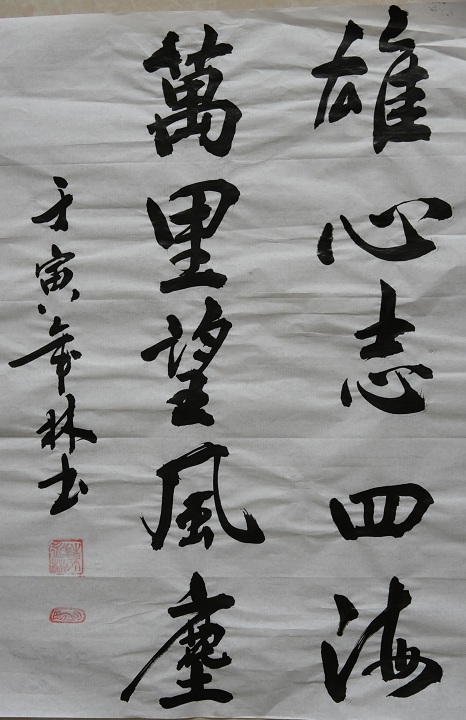 雄心志四海
萬里望風塵
壬寅年林书